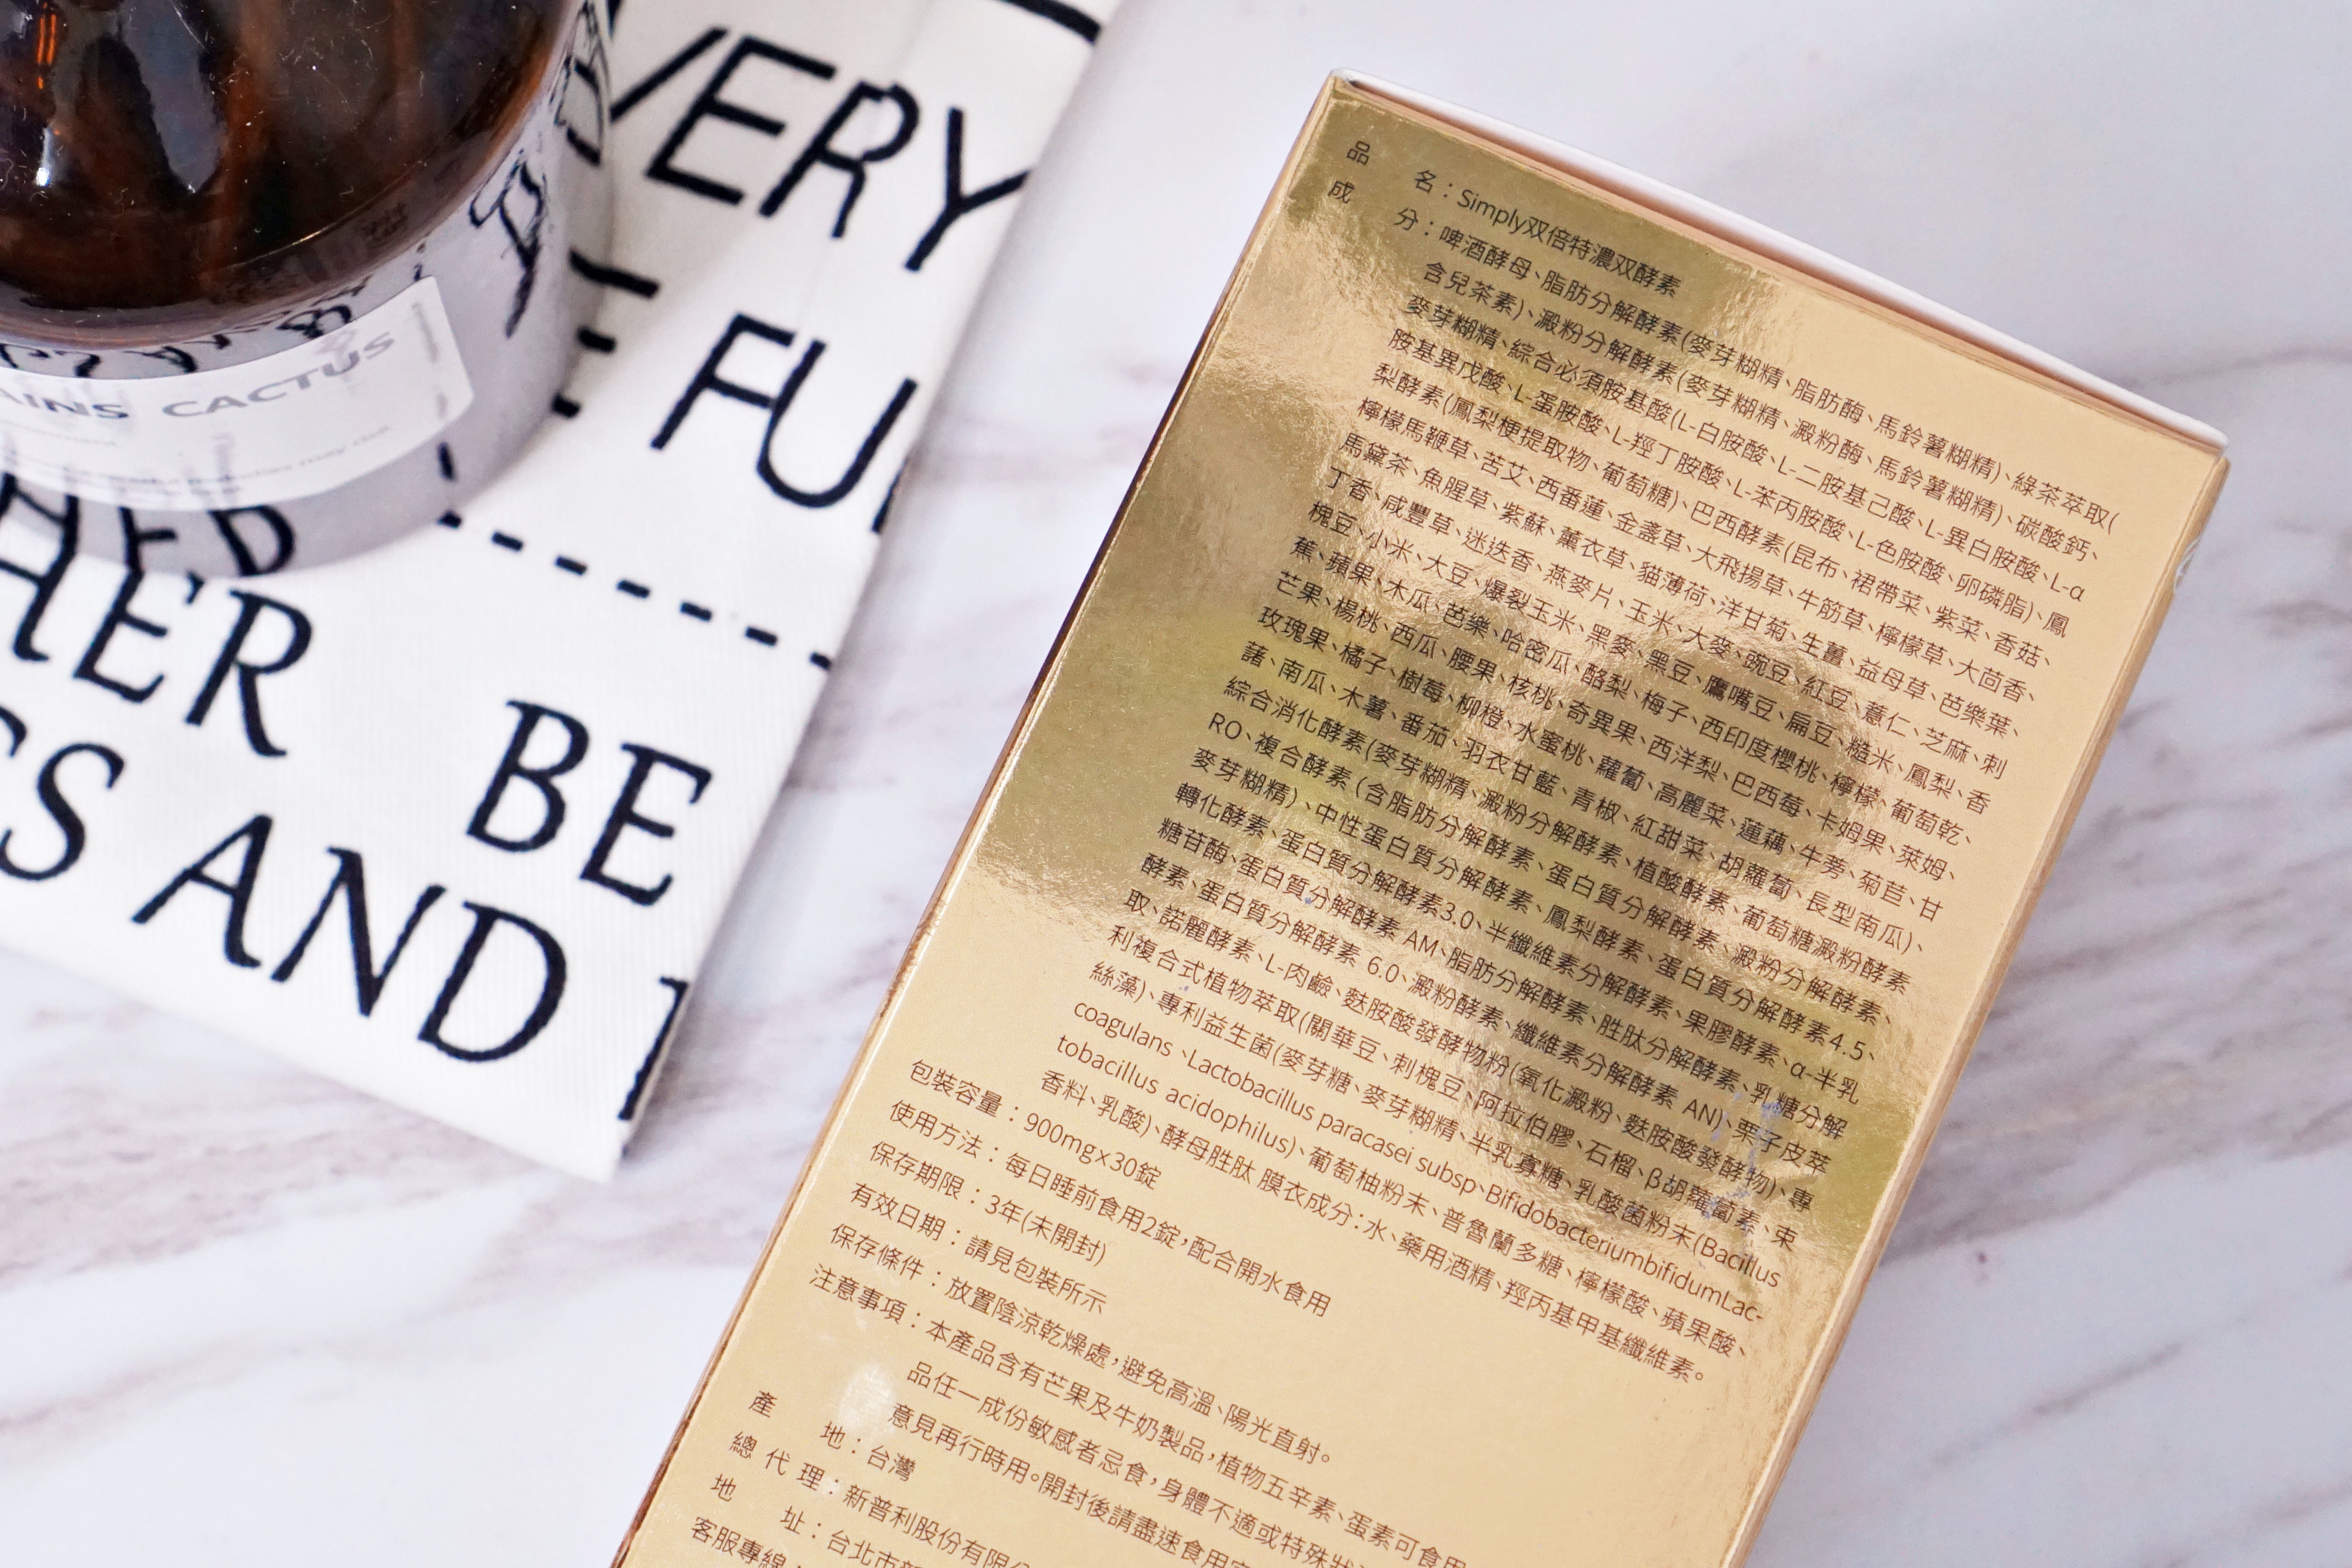 VERY
FU
HER BE
S AND
AINS CACTUS
品　名：Simply双倍特濃双酵素
成　分：啤酒酵母、脂肪分解酵素(麥芽糊精、脂肪酶、馬鈴薯糊精)、綠茶萃取(
含兒茶素)、澱粉分解酵素(麥芽糊精、澱粉酶、馬鈴薯糊精)、碳酸鈣、
麥芽糊精、綜合必須胺基酸(L-白胺酸、L-二胺基己酸、L-異白胺酸、L-α
胺基異戊酸、L-蛋胺酸、L-羥丁胺酸、L-苯丙胺酸、L-色胺酸、卵磷脂)、鳳
梨酵素(鳳梨梗提取物、葡萄糖)、巴西酵素(昆布、裙帶菜、紫菜、香菇、
檸檬馬鞭草、苦艾、西番蓮、金盞草、大飛揚草、牛筋草、檸檬草、大茴香、
馬黛茶、魚腥草、紫蘇、薰衣草、貓薄荷、洋甘菊、生薑、益母草、芭樂葉、
丁香、咸豐草、迷迭香、燕麥片、玉米、大麥、豌豆、紅豆、薏仁、芝麻、刺
槐豆、小米、大豆、爆裂玉米、黑麥、黑豆、鷹嘴豆、扁豆、糙米、鳳梨、香
蕉、蘋果、木瓜、芭樂、哈密瓜、酪梨、梅子、西印度櫻桃、檸檬、葡萄乾、
芒果、楊桃、西瓜、腰果、核桃、奇異果、西洋梨、巴西莓、卡姆果、萊姆、
玫瑰果、橘子、樹莓、柳橙、水蜜桃、蘿蔔、高麗菜、蓮藕、牛蒡、菊苣、甘
藷、南瓜、木薯、番茄、羽衣甘藍、青椒、紅甜菜、胡蘿蔔、長型南瓜)、
綜合消化酵素(麥芽糊精、澱粉分解酵素、植酸酵素、葡萄糖澱粉酵素
RO、複合酵素 (含脂肪分解酵素、蛋白質分解酵素、澱粉分解酵素、
麥芽糊精)、中性蛋白質分解酵素、鳳梨酵素、蛋白質分解酵素4.5、
轉化酵素、蛋白質分解酵素3.0、半纖維素分解酵素、果膠酵素、α-半乳
糖苷酶、蛋白質分解酵素 AM、脂肪分解酵素、胜肽分解酵素、乳糖分解
酵素、蛋白質分解酵素 6.0、澱粉酵素、纖維素分解酵素 AN)、栗子皮萃
取、諾麗酵素、L-肉鹼、麩胺酸發酵物粉(氧化澱粉、麩胺酸發酵物)、專
利複合式植物萃取(關華豆、刺槐豆、阿拉伯膠、石榴、β胡蘿蔔素、束
絲藻)、專利益生菌(麥芽糖、麥芽糊精、半乳寡糖、乳酸菌粉末(Bacillus
coagulans、Lactobacillus paracasei subsp、BifidobacteriumbifidumLac-
tobacillus acidophilus)、葡萄柚粉末、普魯蘭多糖、檸檬酸、蘋果酸、
香料、乳酸)、酵母胜肽 膜衣成分：水、藥用酒精、羥丙基甲基纖維素。
包裝容量：900mg×30錠
使用方法：每日睡前食用2錠，配合開水食用
保存期限：3年(未開封)
有效日期：請見包裝所示
保存條件：放置陰涼乾燥處，避免高溫、陽光直射。
注意事項：本產品含有芒果及牛奶製品，植物五辛素、蛋素可食用
品任一成份敏感者忌食，身體不適或特殊狀
意見再行時用。開封後請盡速食用
產　地：台灣
總 代 理：新普利股份有限公
地　址：台北市
客服專線：